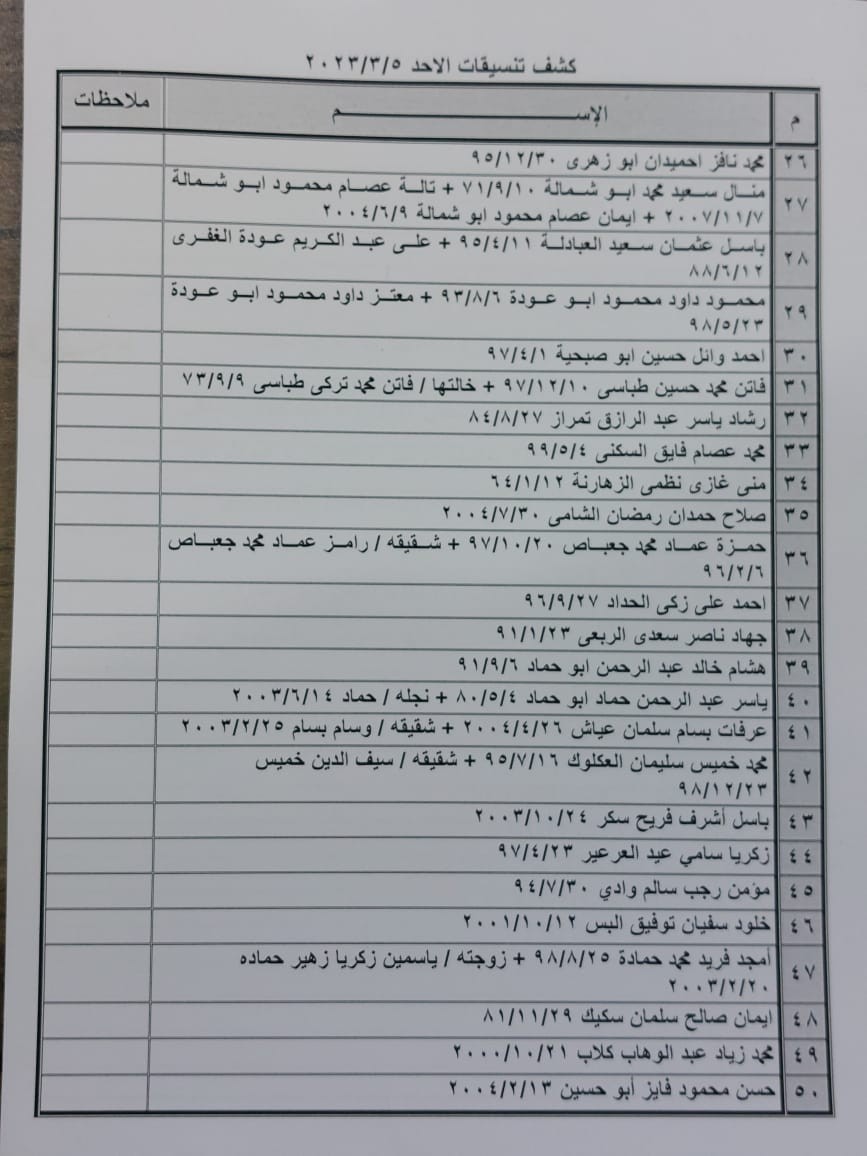 كشف تنسيقات الاحد ٢٠٢٣/٣/٥
م الإســــــم ملاحظات
٢٦ محمد نافز احميدان ابو زهرى ٩٥/١٢/٣٠
٢٧ منال سعيد محمد ابو شمالة ٧١/٩/١٠ + تالة عصام محمود ابو شمالة
٢٠٠٧/١١/٧ + ايمان عصام محمود ابو شمالة ٢٠٠٤/٦/٩
٢٨ باسل عثمان سعيد العبادلة ٩٥/٤/١١ + على عبد الكريم عودة الغفرى
٨٨/٦/١٢
٢٩ محمود داود محمود ابو عودة ٩٣/٨/٦ + معتز داود محمود ابو عودة
٩٨/٥/٢٣
٣٠ احمد وائل حسين ابو صبحية ٩٧/٤/١
٣١ فاتن محمد حسين طباسى ٩٧/١٢/١٠ + خالتها / فاتن محمد تركى طباسى ٧٣/٩/٩
٣٢ رشاد ياسر عبد الرازق تمراز ٨٤/٨/٢٧
٣٣ محمد عصام فايق السكنى ٩٩/٥/٤
٣٤ منى غازى نظمى الزهارنة ٦٤/١/١٢
٣٥ صلاح حمدان رمضان الشامى ٢٠٠٤/٧/٣٠
٣٦ حمزة عماد محمد جعباص ٩٧/١٠/٢٠ + شقيقه / رامز عماد محمد جعباص
٩٦/٢/٦
٣٧ احمد على زكى الحداد ٩٦/٩/٢٧
٣٨ جهاد ناصر سعدى الربعى ٩١/١/٢٣
٣٩ هشام خالد عبد الرحمن ابو حماد ٩١/٩/٦
٤٠ ياسر عبد الرحمن حماد ابو حماد ٨٠/٥/٤ + نجله / حماد ٢٠٠٣/٦/١٤
٤١ عرفات بسام سلمان عياش ٢٠٠٤/٤/٢٦ + شقيقه / وسام بسام ٢٠٠٣/٢/٢٥
٤٢ محمد خميس سليمان العكلوك ٩٥/٧/١٦ + شقيقه / سيف الدين خميس
٩٨/١٢/٢٣
٤٣ باسل أشرف فريح سكر ٢٠٠٣/١٠/٢٤
٤٤ زكريا سامي عيد العرعير ٩٧/٤/٢٣
٤٥ مؤمن رجب سالم وادي ٩٤/٧/٣٠
٤٦ خلود سفيان توفيق البس ٢٠٠١/١٠/١٢
٤٧ أمجد فريد محمد حمادة ٩٨/٨/٢٥ + زوجته / ياسمين زكريا زهير حماده
٢٠٠٣/٢/٢٠
٤٨ ايمان صالح سلمان سكيك ٨١/١١/٢٩
٤٩ محمد زياد عبد الوهاب كلاب ٢٠٠٠/١٠/٢١
٥٠ حسن محمود فايز أبو حسين ٢٠٠٤/٢/١٣